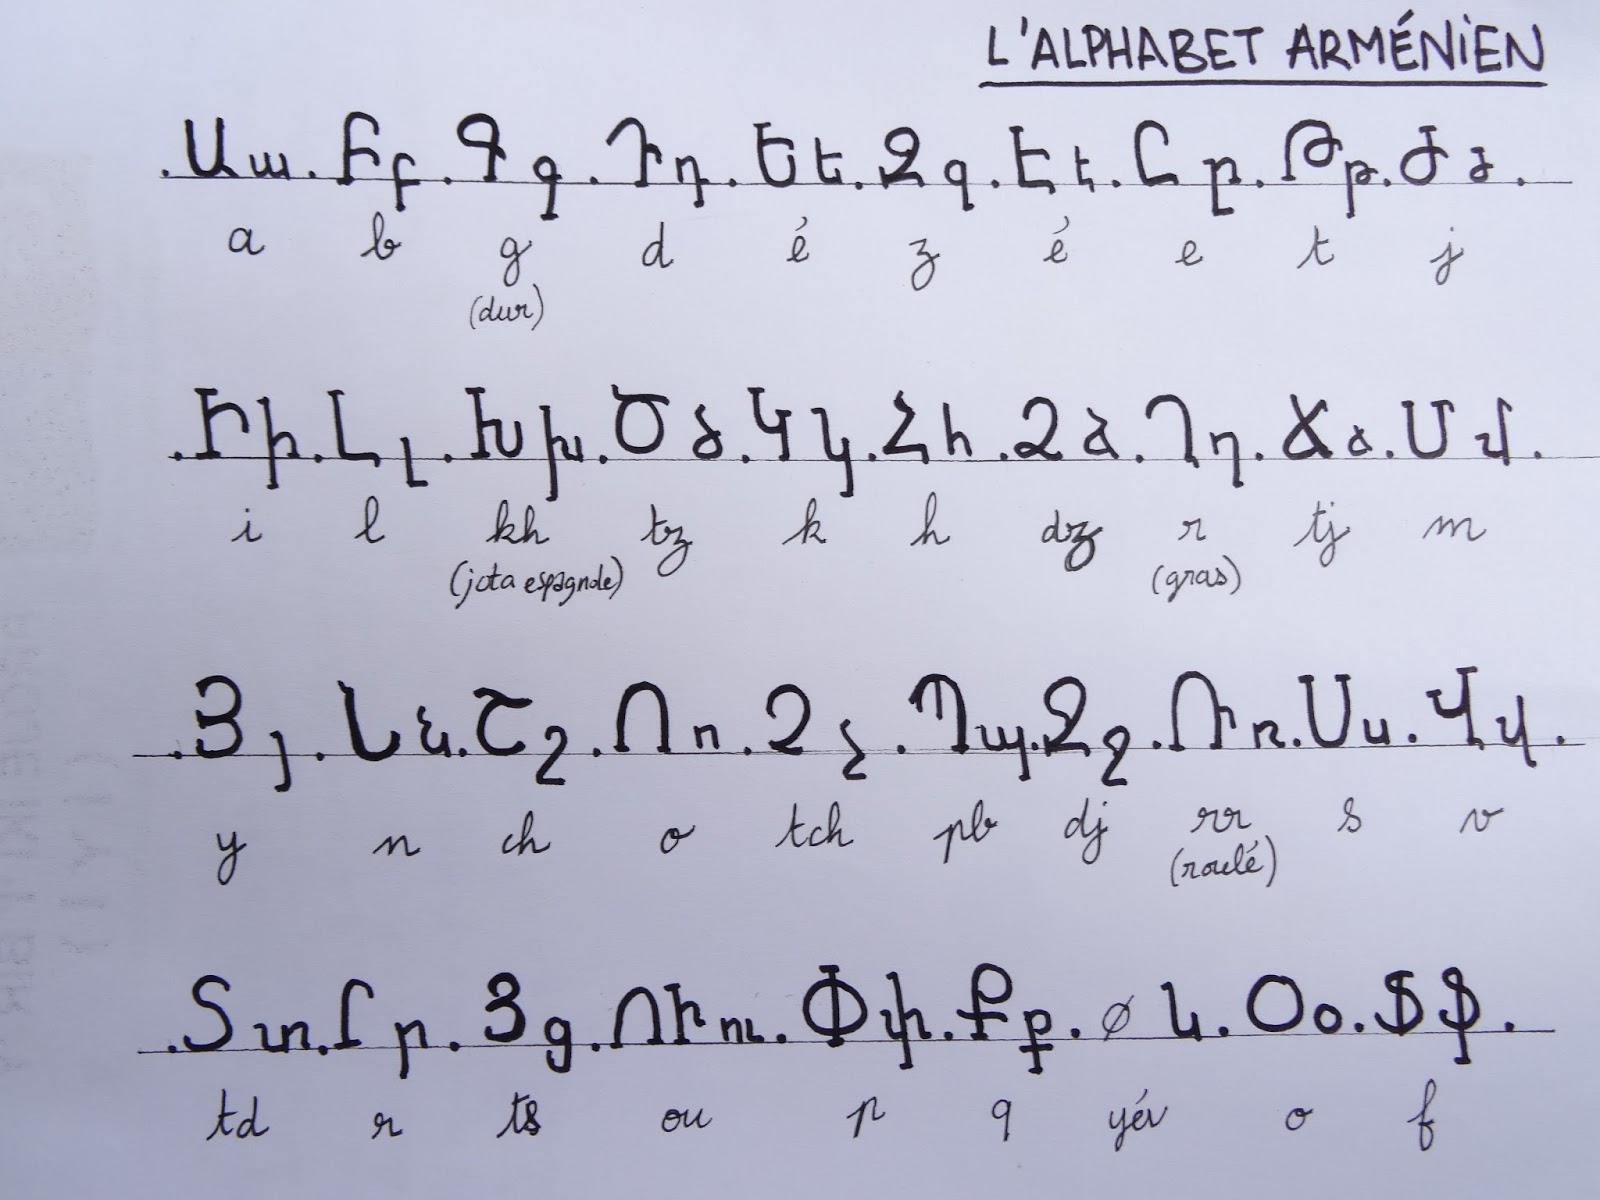 L'ALPHABET ARMÉNIEN
.Աա.Բբ.Գգ.Դդ.Եե.Զզ.Էէ.Ըը.Թթ.Ժժ.
a b g d é z é e t j
(dur)
.Իի.Լլ.Խխ.Ծծ.Կկ.Հհ.Ձձ.Ղղ.Ճճ.Մմ.
i l kh tz k h dz r tj m
(jota espagnole) (gras)
.Յյ.Նն.Շշ.Ոո.Չչ.Պպ.Ջջ.Ռռ.Սս.Վվ.
y n ch o tch pb dj rr s v
(roulé)
.Տտ.Րր.Ցց.ՈՒու.Փփ.Քք.∅և.Օօ.Ֆֆ.
td r ts ou p q yév o f